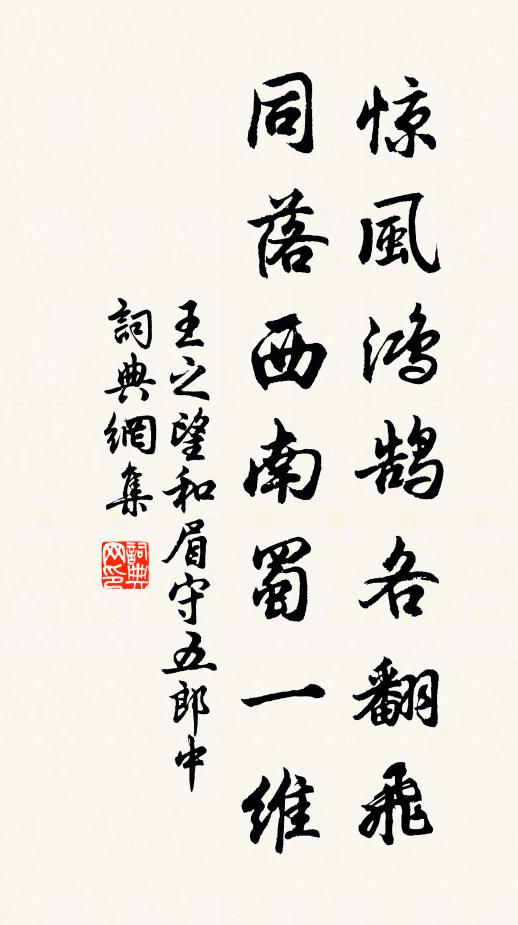 惊風鸿鹄各翻飛
同落西南蜀一維
王之望和眉守五郎中
詞典網集
詞典网印